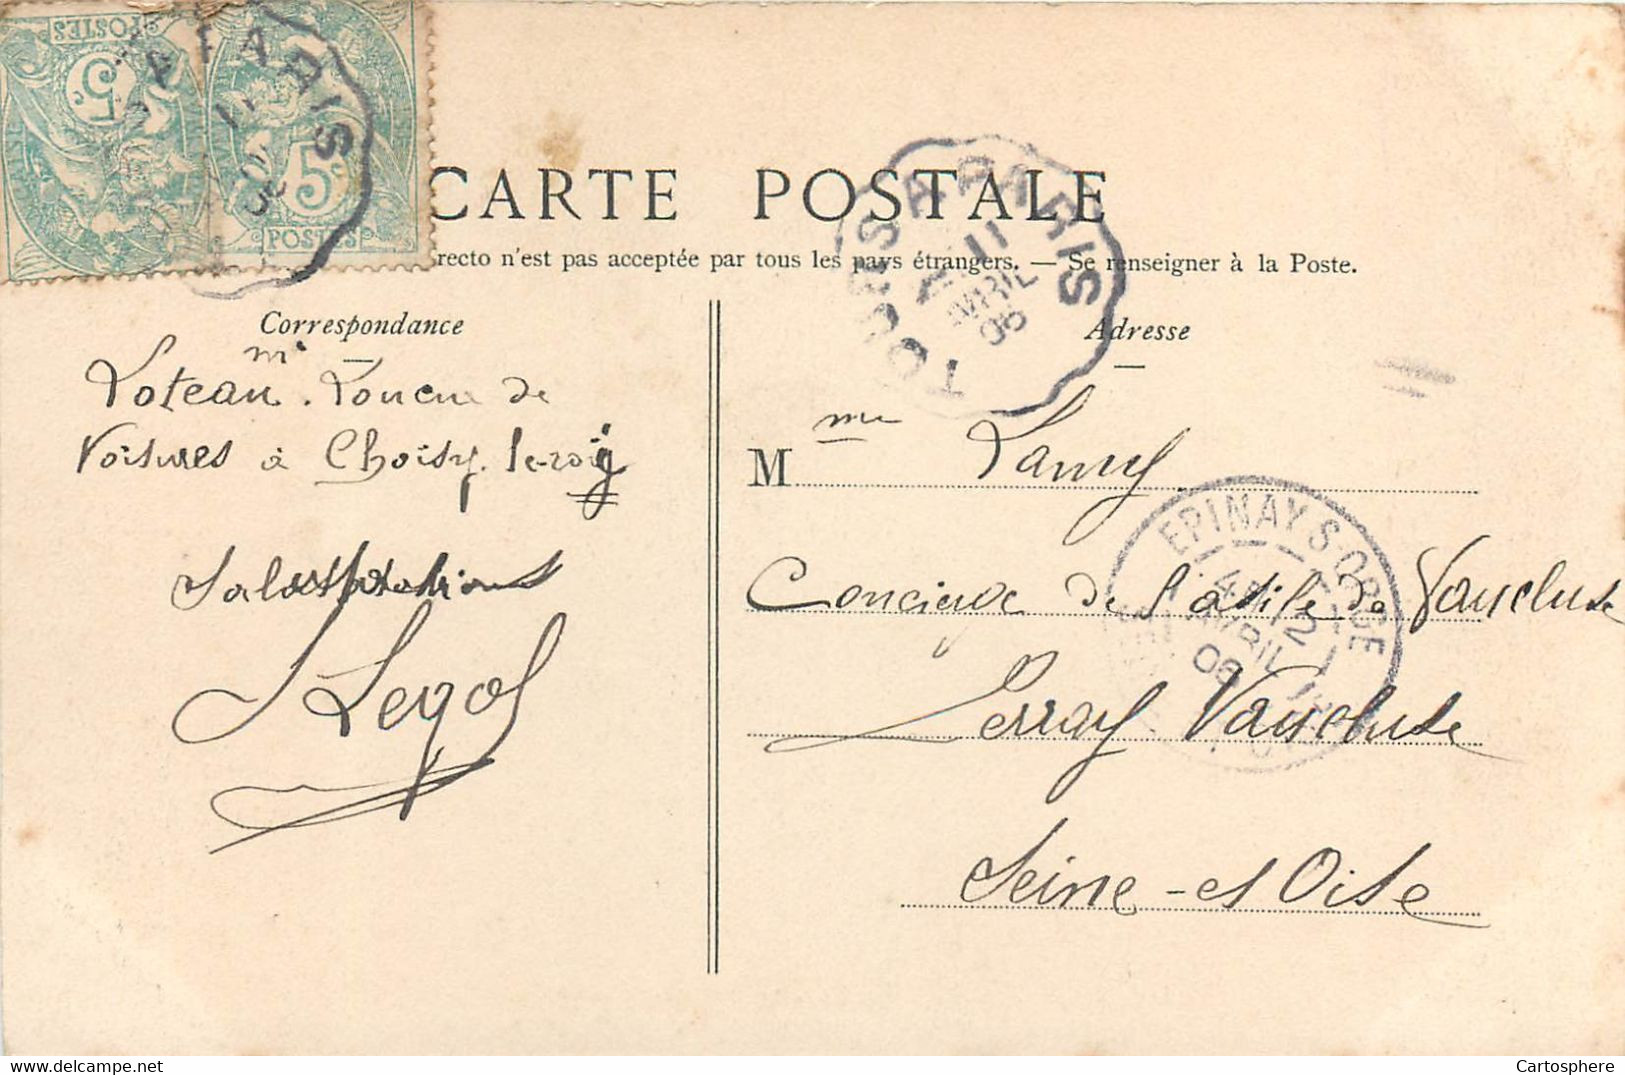 POSTES
5c
5c
POSTES
A PARIS
11
06
CARTE POSTALE
recto n'est pas acceptée par tous les pays étrangers. — Se renseigner à la Poste.
TOURS A PARIS
11
AVRIL
06
Correspondance
Adresse
Mr
Loteau. Loueur de
Voitures à Choisy-le-roi
Salutations
Mme Lamy
Concierge de l'asile de Vaucluse
Perray Vaucluse
Seine-et Oise
EPINAY-S-ORGE
12
AVRIL
06
Cartosphere